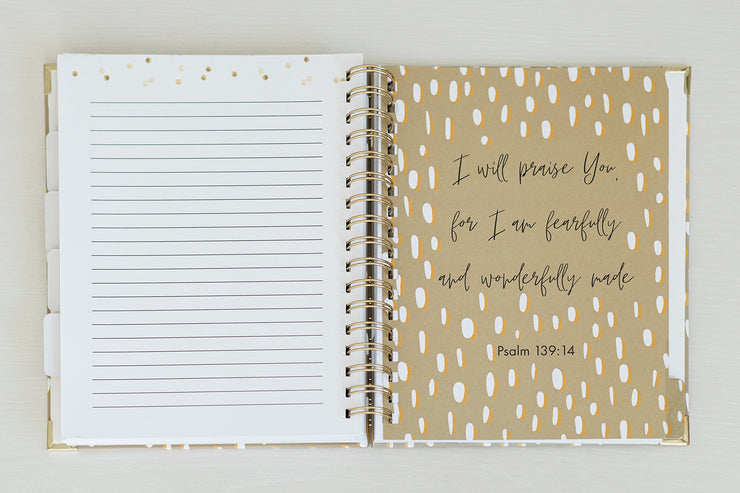 I will praise You,
for I am fearfully
and wonderfully made
Psalm 139:14